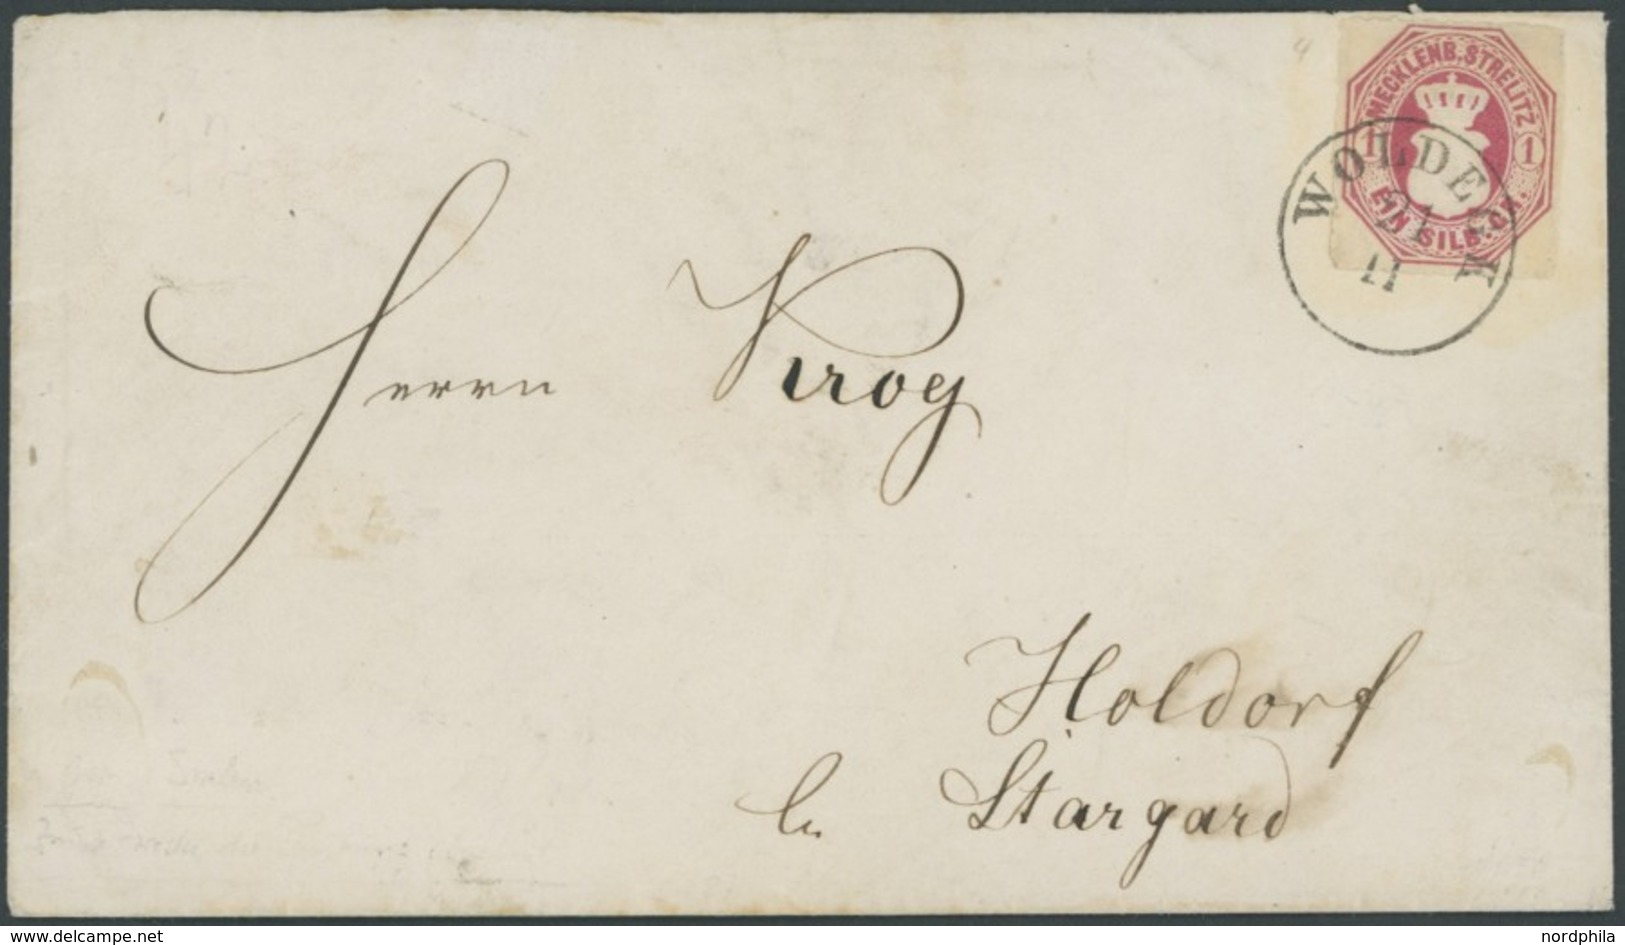 MECKLENB. STRELITZ
1 1
EIN SILB. GR.
WOLDEGK
21
11
Herrn Krog
Holdorf
bei Stargard
www.delcampe.net
nordphila